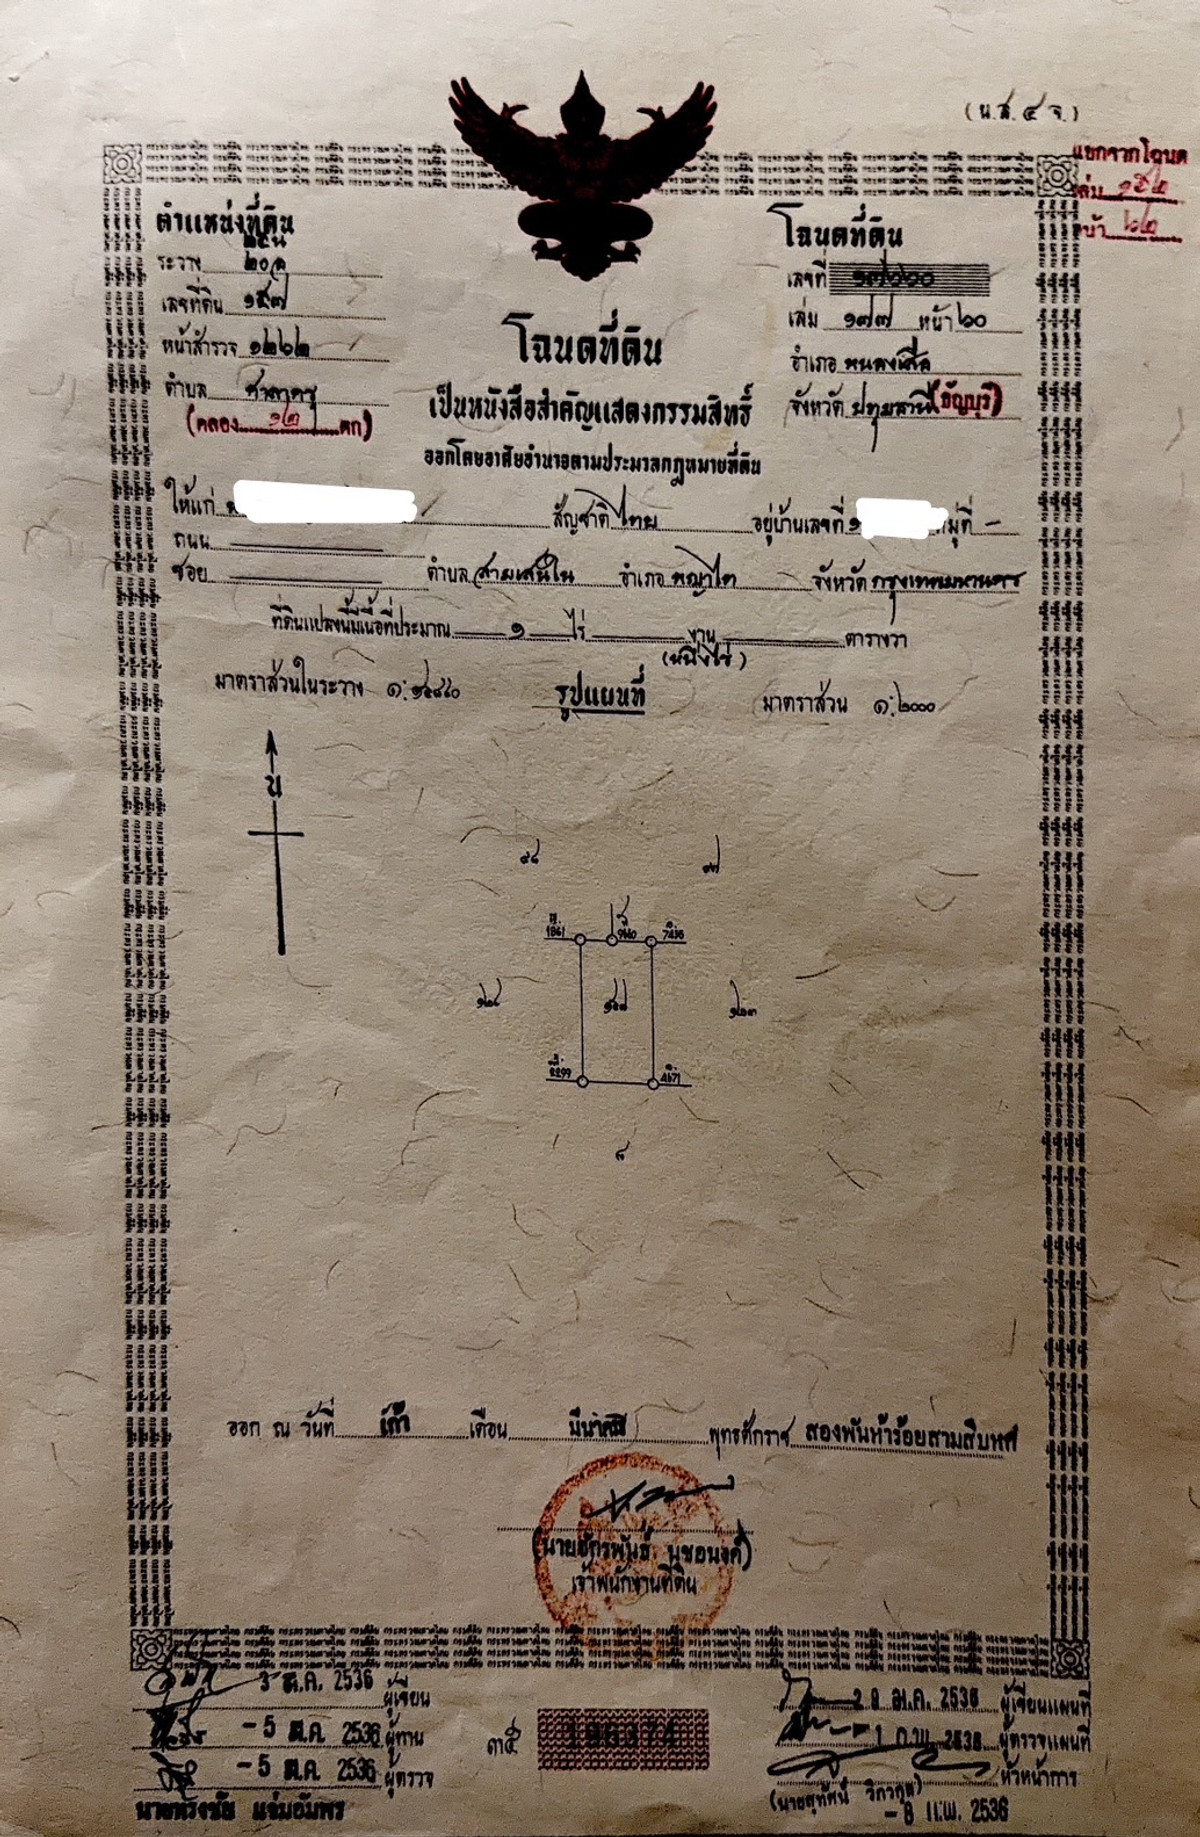 (น.ส.๔ จ.)
แยกจากโฉนด
เล่ม ๑๕๒
หน้า ๖๒
ตำแหน่งที่ดิน
ระวาง
เลขที่ดิน ๑๕๗
หน้าสำรวจ ๑๒๖๒
ตำบล ศาลาครุ
(คลอง ๑๒ ตก)
โฉนดที่ดิน
เลขที่ ๑๗๖๖๐
เล่ม ๑๗๗ หน้า ๖๐
อำเภอ หนองเสือ
จังหวัด ปทุมธานี (ธัญบุรี)
โฉนดที่ดิน
เป็นหนังสือสำคัญแสดงกรรมสิทธิ์
ออกโดยอาศัยอำนาจตามประมวลกฎหมายที่ดิน
ให้แก่ สัญชาติ ไทย อยู่บ้านเลขที่ หมู่ที่ –
ถนน
ซอย ตำบล สามเสนใน อำเภอ พญาไท จังหวัด กรุงเทพมหานคร
ที่ดินแปลงนี้มีเนื้อที่ประมาณ ๑ ไร่ งาน ตารางวา
(หนึ่งไร่)
มาตราส่วนในระวาง รูปแผนที่ มาตราส่วน ๑:๒๐๐๐
น
๑๕๗
๘
ออก ณ วันที่ เก้า เดือน มีนาคม พุทธศักราช สองพันห้าร้อยสามสิบหก
เจ้าพนักงานที่ดิน
ต.ค. 2536 ผู้เขียน
- 5 ต.ค. 2536 ผู้ทาน
- 5 ต.ค. 2536 ผู้ตรวจ
นายทรงชัย แจ่มอัมพร
๓๕ 196374
ม.ค. 2536 ผู้เขียนแผนที่
1 ก.พ. 2536 ผู้ตรวจแผนที่
หัวหน้าการ
2536